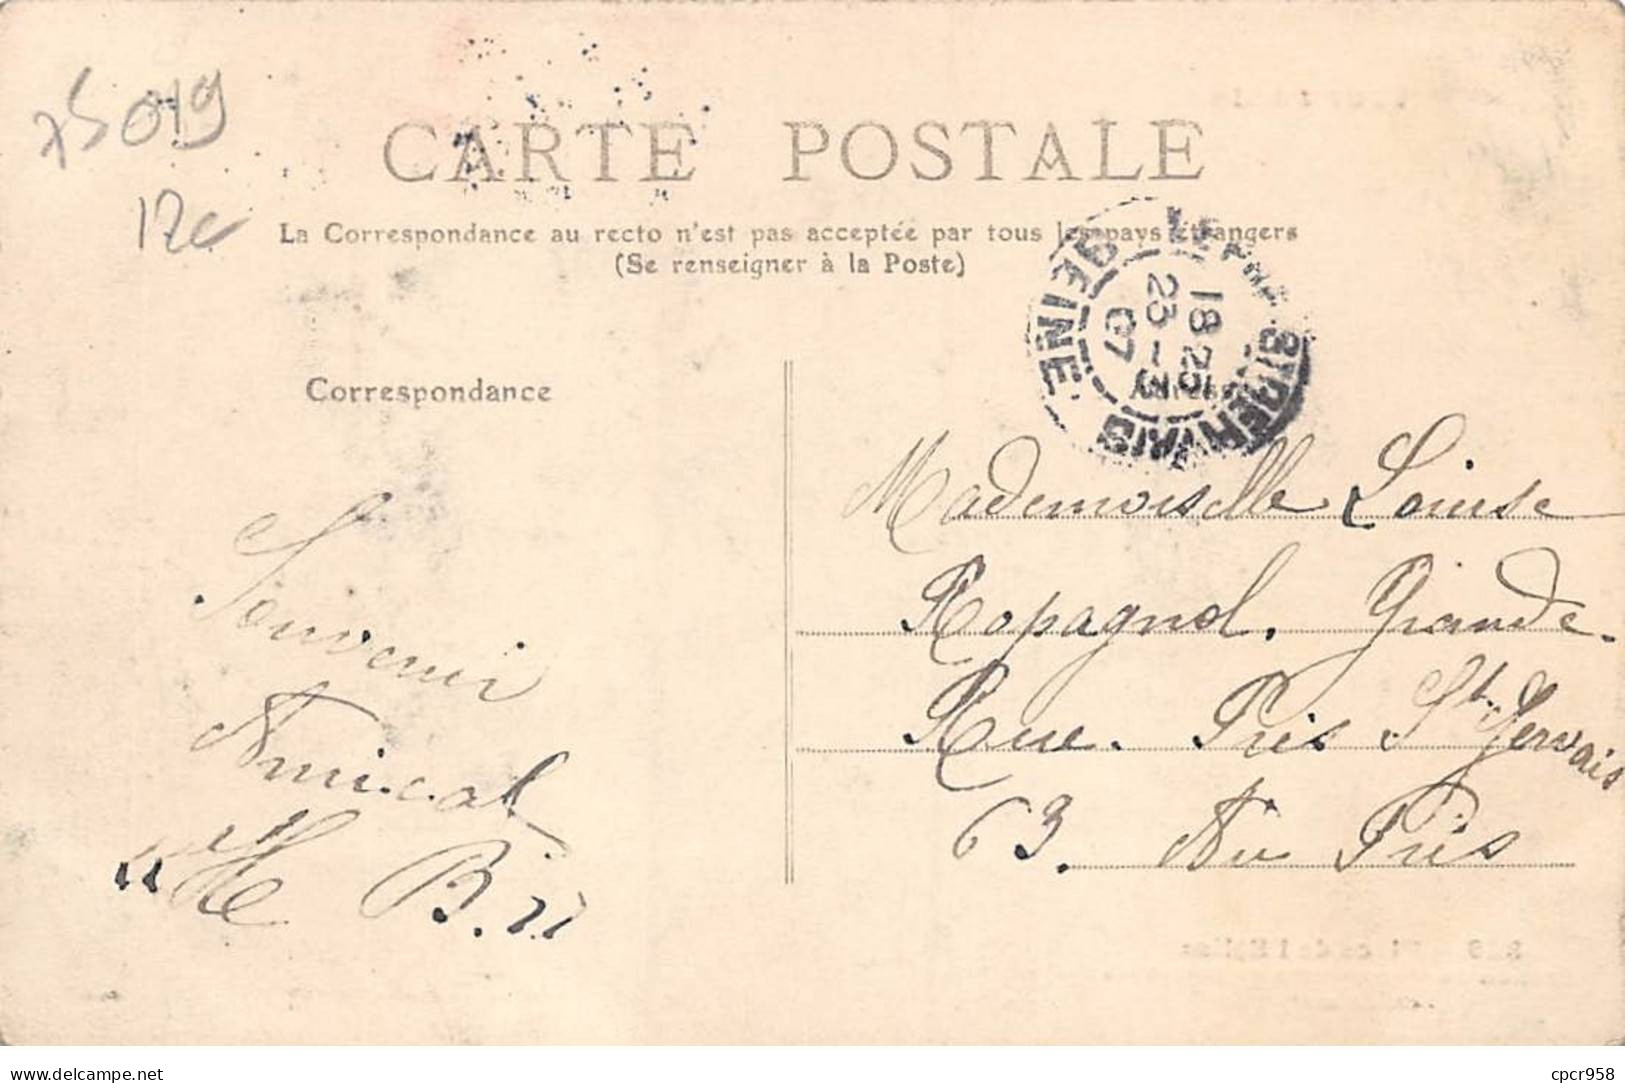 75019
12c
CARTE POSTALE
La Correspondance au recto n'est pas acceptée par tous les pays étrangers
(Se renseigner à la Poste)
18 25
23 -3
07
SEINE
Correspondance
Souvenir
Amical
"H B. "
Mademoiselle Louise
Ropagnol. Grande.
Rue. Prés St. Gervais
63. Au Près
delcampe.net
cpcr958